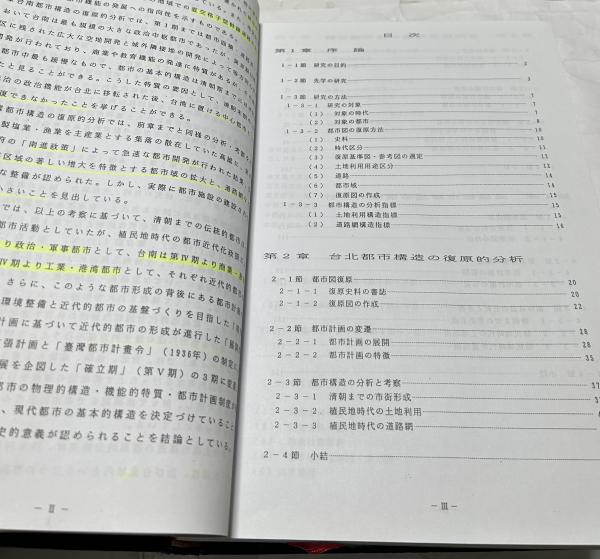 の直交格子型
市機能の発展への指向性を示すものである。
台南都市構造の復原的分析では、第Ⅰ期までは都市
おいて台南は最も規模の大きな政治中枢都市であったが、
区に残された広大な空地開発と城外隣接地の開発によって
開発が行われており、商業や教育機能の発達に特質が
都市中最も緩慢なもので、都市の基本的構造は清朝期
たと見ることができる。こうした特質の要因として、
政治の政治機能が台北に移転された後、台南に置ける中心都市
復できなかったことを挙げることができる。
都市構造の復原的分析では、前章までと同様の分析・考察
製塩業・漁業を主産業とする集落の散在していた高雄
府の「南進政策」によって急速な都市開発が行われた結果
区域の著しい増大を特徴とする都市域の拡大と、
な整備が認められた。しかし、実際に都市施設の建設
さいことを見出している。
では、以上の考察に基づいて、清朝までの伝統的都市
都市活動としていたが、植民地時代の都市近代化政策
り政治・軍事都市として、台南は第Ⅳ期より商業・
Ⅳ期より工業・港湾都市として、それぞれ近代的都
。さらに、このような都市形成の背後にある都市計画
環境整備と近代的都市の基盤づくりを目指した「
計画に基づいて近代的都市の形成が進行した「
張計画と「臺灣都市計畫令」（1936年）の制定
展を企図した「確立期」（第Ⅴ期）の３期に
都市の物理的構造・機能的特質・都市計画制度
、現代都市の基本的構造を決定づけていること
史的意義が認められることを結論としている。
－Ⅱ－
目　次
第１章　序　論
１－１節　研究の目的 2
１－２節　先学の研究 5
１－３節　研究の方法 7
１－３－１　研究の対象
（１）　対象の時代
（２）　対象の都市
１－３－２　都市図の復原方法 10
（１）　史料 10
（２）　時代区分 11
（３）　復原基準図・参考図の選定
（４）　土地利用用途区分
（５）　道路 14
（６）　都市域
（７）　復原図の作成 15
１－３－３　都市構造の分析指標
（１）　土地利用構造指標
（２）　道路網構造指標 16
第２章　台北都市構造の復原的分析
２－１節　都市図復原 20
２－１－１　復原史料の書誌 20
２－１－２　復原図の作成 22
２－２節　都市計画の変遷 28
２－２－１　都市計画の展開 28
２－２－２　都市計画の特徴 35
２－３節　都市構造の分析と考察 37
２－３－１　清朝までの市街形成 37
２－３－２　植民地時代の土地利用
２－３－３　植民地時代の道路網
２－４節　小結
－Ⅲ－